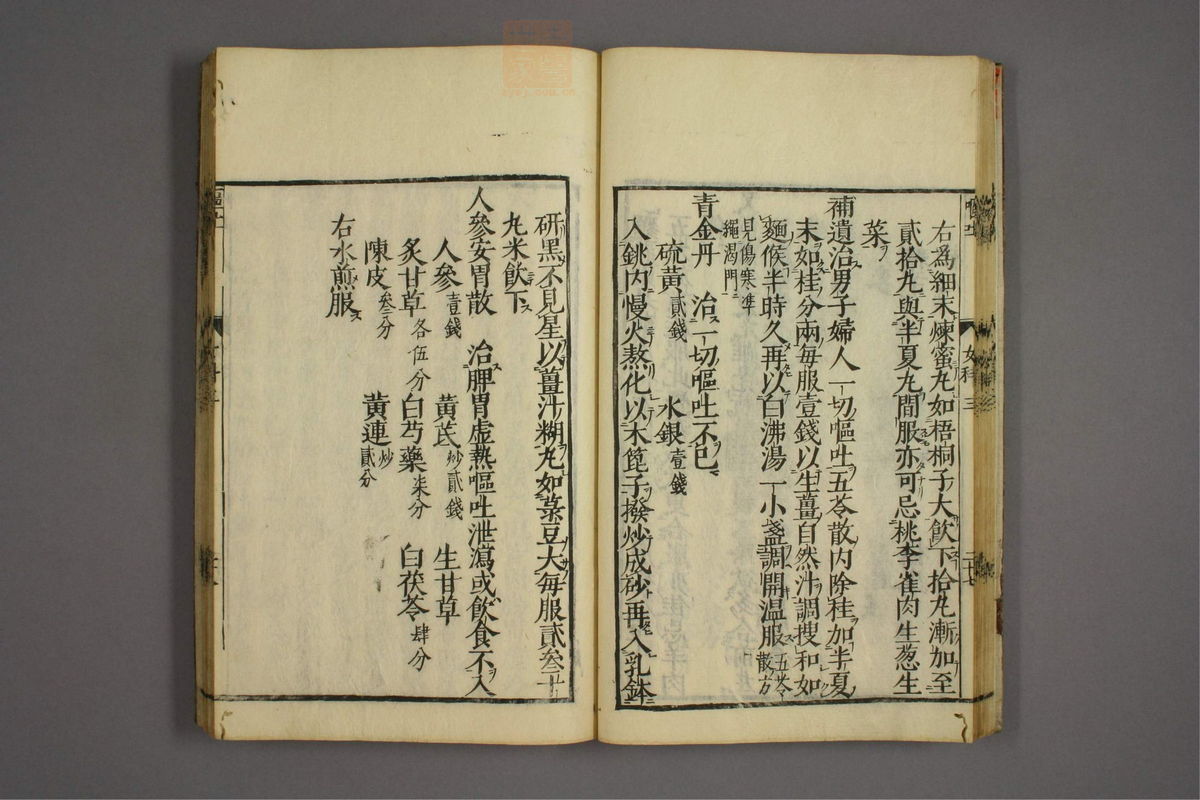 右爲細末煉蜜丸如梧桐子大飲下拾丸漸加至
貳拾丸與半夏丸間服亦可忌桃李雀肉生葱生
菜
補遺治男子婦人一切嘔吐五苓散內除桂加半夏
末如桂分兩每服壹錢以生薑自然汁調搜和如
麵候半時久再以白沸湯一小盞調開溫服五苓散方
見傷寒準
繩渴門
青金丹　治一切嘔吐不已
硫黃貳錢　水銀壹錢
入銚內慢火熬化以木篦子撥炒成砂再入乳鉢
女科三
研黑不見星以薑汁糊丸如菉豆大每服貳叁十
丸米飲下
人參安胃散　治脾胃虛熱嘔吐泄瀉或飲食不入
人參壹錢　黃芪炒貳錢　生甘草
炙甘草各伍分　白芍藥柒分　白茯苓肆分
陳皮叁分　黃連炒貳分
右水煎服